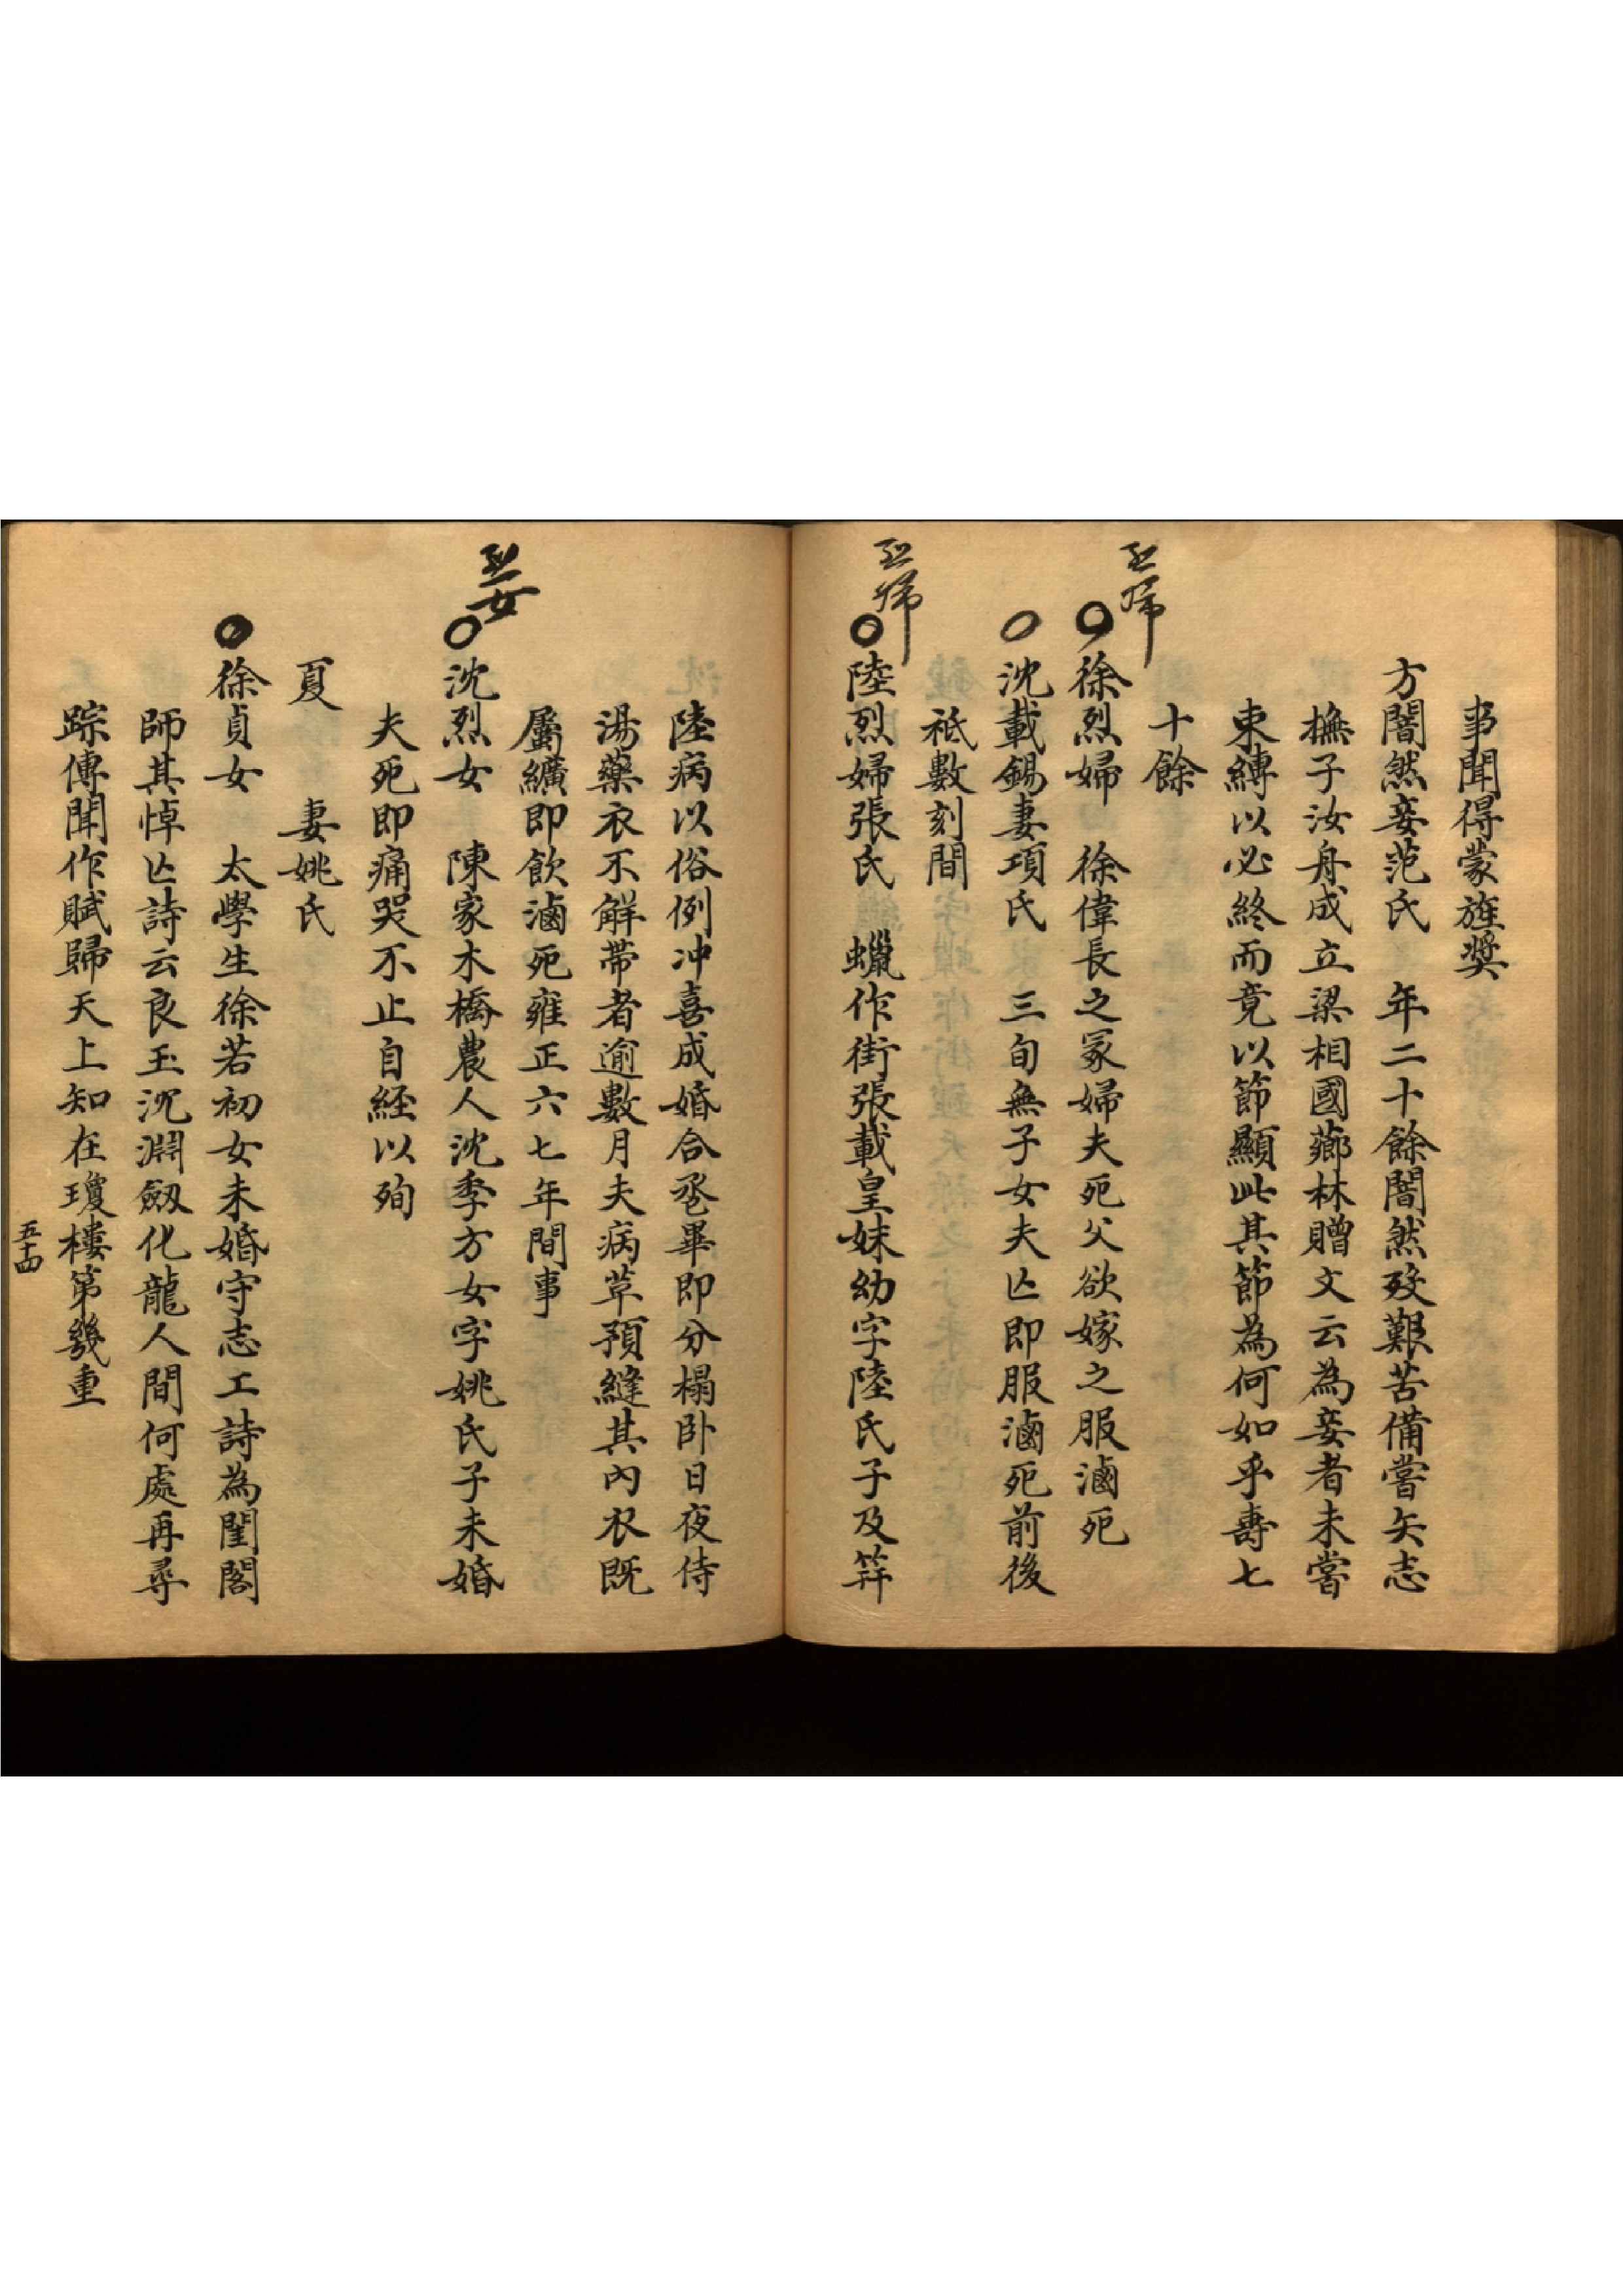 事聞得蒙旌奬
方闇然妾范氏　年二十餘闇然歿艱苦備嘗矢志
撫子汝舟成立梁相國薌林贈文云為妾者未嘗
束縛以必終而竟以節顯此其節為何如乎壽七
十餘
烈婦
○徐烈婦　徐偉長之冢婦夫死父欲嫁之服滷死
○沈載錫妻項氏　三旬無子女夫亾即服滷死前後
祗數刻間
烈婦
○陸烈婦張氏　蠟作街張載皇妹幼字陸氏子及笄
陸病以俗例冲喜成婚合卺畢即分榻卧日夜侍
湯藥衣不解帶者逾數月夫病革預縫其內衣既
屬纊即飲滷死雍正六七年間事
烈女
○沈烈女　陳家木橋農人沈季方女字姚氏子未婚
夫死即痛哭不止自経以殉
夏　　妻姚氏
○徐貞女　太學生徐若初女未婚守志工詩為閨閣
師其悼亾詩云良玉沉淵劔化龍人間何處再尋
踪傳聞作賦歸天上知在瓊樓第幾重
五十四